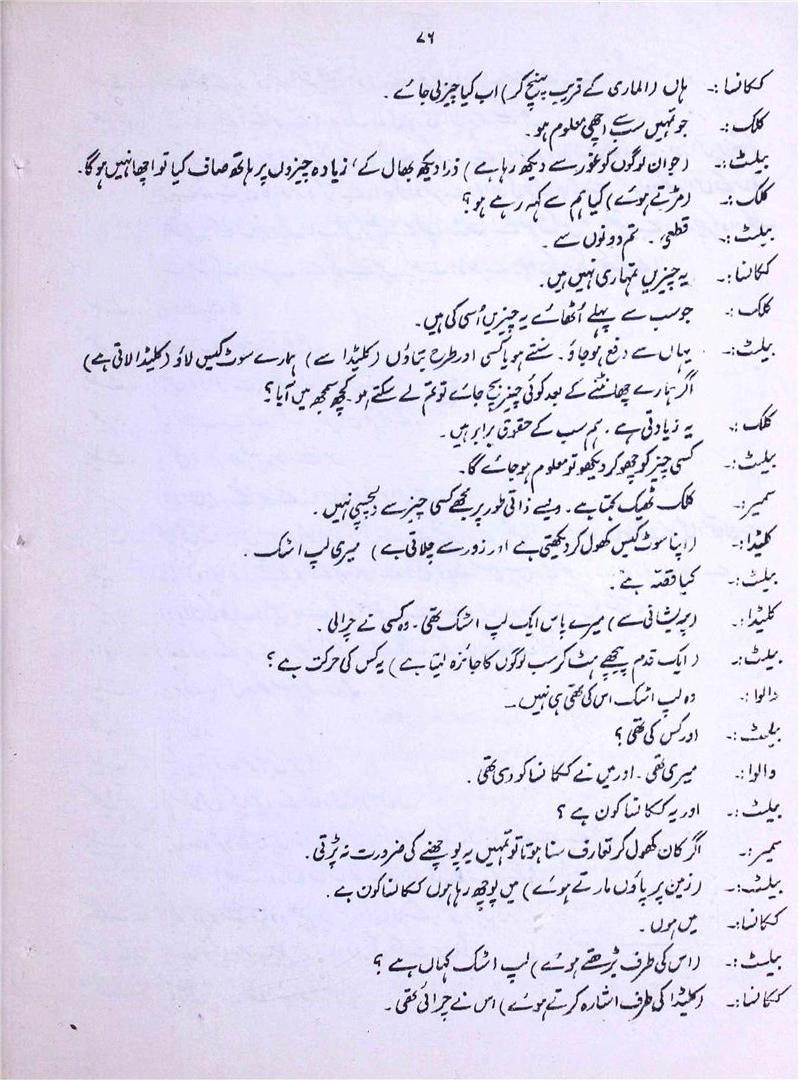 ۷۶
ککانسا :۔ ہاں (الماری کے قریب پہنچ کر) اب کیا چیز لی جائے۔
کلک :۔ جو تمہیں سب سے اچھی معلوم ہو۔
بیلٹ :۔ (جوان لوگوں کو غور سے دیکھ رہا ہے) ذرا دیکھ بھال کے، زیادہ چیزوں پر ہاتھ صاف کیا تو اچھا نہیں ہوگا۔
کلک :۔ (مڑتے ہوئے) کیا ہم سے کہہ رہے ہو؟
بیلٹ :۔ قطعی۔ تم دونوں سے۔
ککانسا :۔ یہ چیزیں تمہاری نہیں ہیں۔
کلک :۔ جو سب سے پہلے اُٹھائے یہ چیزیں اُسی کی ہیں۔
بیلٹ :۔ یہاں سے دفع ہو جاؤ۔ سنتے ہو یا کسی اور طرح بتاؤں (کلیڈا سے) ہمارے سوٹ کیس لاؤ (کلیڈا لاتی ہے)
اگر ہمارے چھانٹنے کے بعد کوئی چیز بچ جائے تو تم لے سکتے ہو۔ کچھ سمجھ میں آیا؟
کلک :۔ یہ زیادتی ہے۔ ہم سب کے حقوق برابر ہیں۔
بیلٹ :۔ کسی چیز کو چھو کر دیکھو تو معلوم ہو جائے گا۔
سمیر :۔ کلک ٹھیک کہتا ہے۔ ویسے ذاتی طور پر مجھے کسی چیز سے دلچسپی نہیں۔
کلیڈا :۔ (اپنا سوٹ کیس کھول کر دیکھتی ہے اور زور سے چلاتی ہے) میری لپ اسٹک۔
بیلٹ :۔ کیا قصّہ ہے۔
کلیڈا :۔ (پریشانی سے) میرے پاس ایک لپ اسٹک تھی۔ وہ کسی نے چرالی۔
بیلٹ :۔ (ایک قدم پیچھے ہٹ کر سب لوگوں کا جائزہ لیتا ہے) یہ کس کی حرکت ہے؟
والوا :۔ وہ لپ اسٹک اس کی تھی ہی نہیں۔
بیلٹ :۔ اور کس کی تھی؟
والوا :۔ میری تھی۔ اور میں نے ککانسا کو دی تھی۔
بیلٹ :۔ اور یہ ککانسا کون ہے؟
سمیر :۔ اگر کان کھول کر تعارف سنا ہوتا تو تمہیں یہ پوچھنے کی ضرورت نہ پڑتی۔
بیلٹ :۔ (زمین پر پاؤں مارتے ہوئے) میں پوچھ رہا ہوں ککانسا کون ہے۔
ککانسا :۔ میں ہوں۔
بیلٹ :۔ (اس کی طرف بڑھتے ہوئے) لپ اسٹک کہاں ہے؟
ککانسا :۔ (کلیڈا کی طرف اشارہ کرتے ہوئے) اس نے چرائی تھی۔